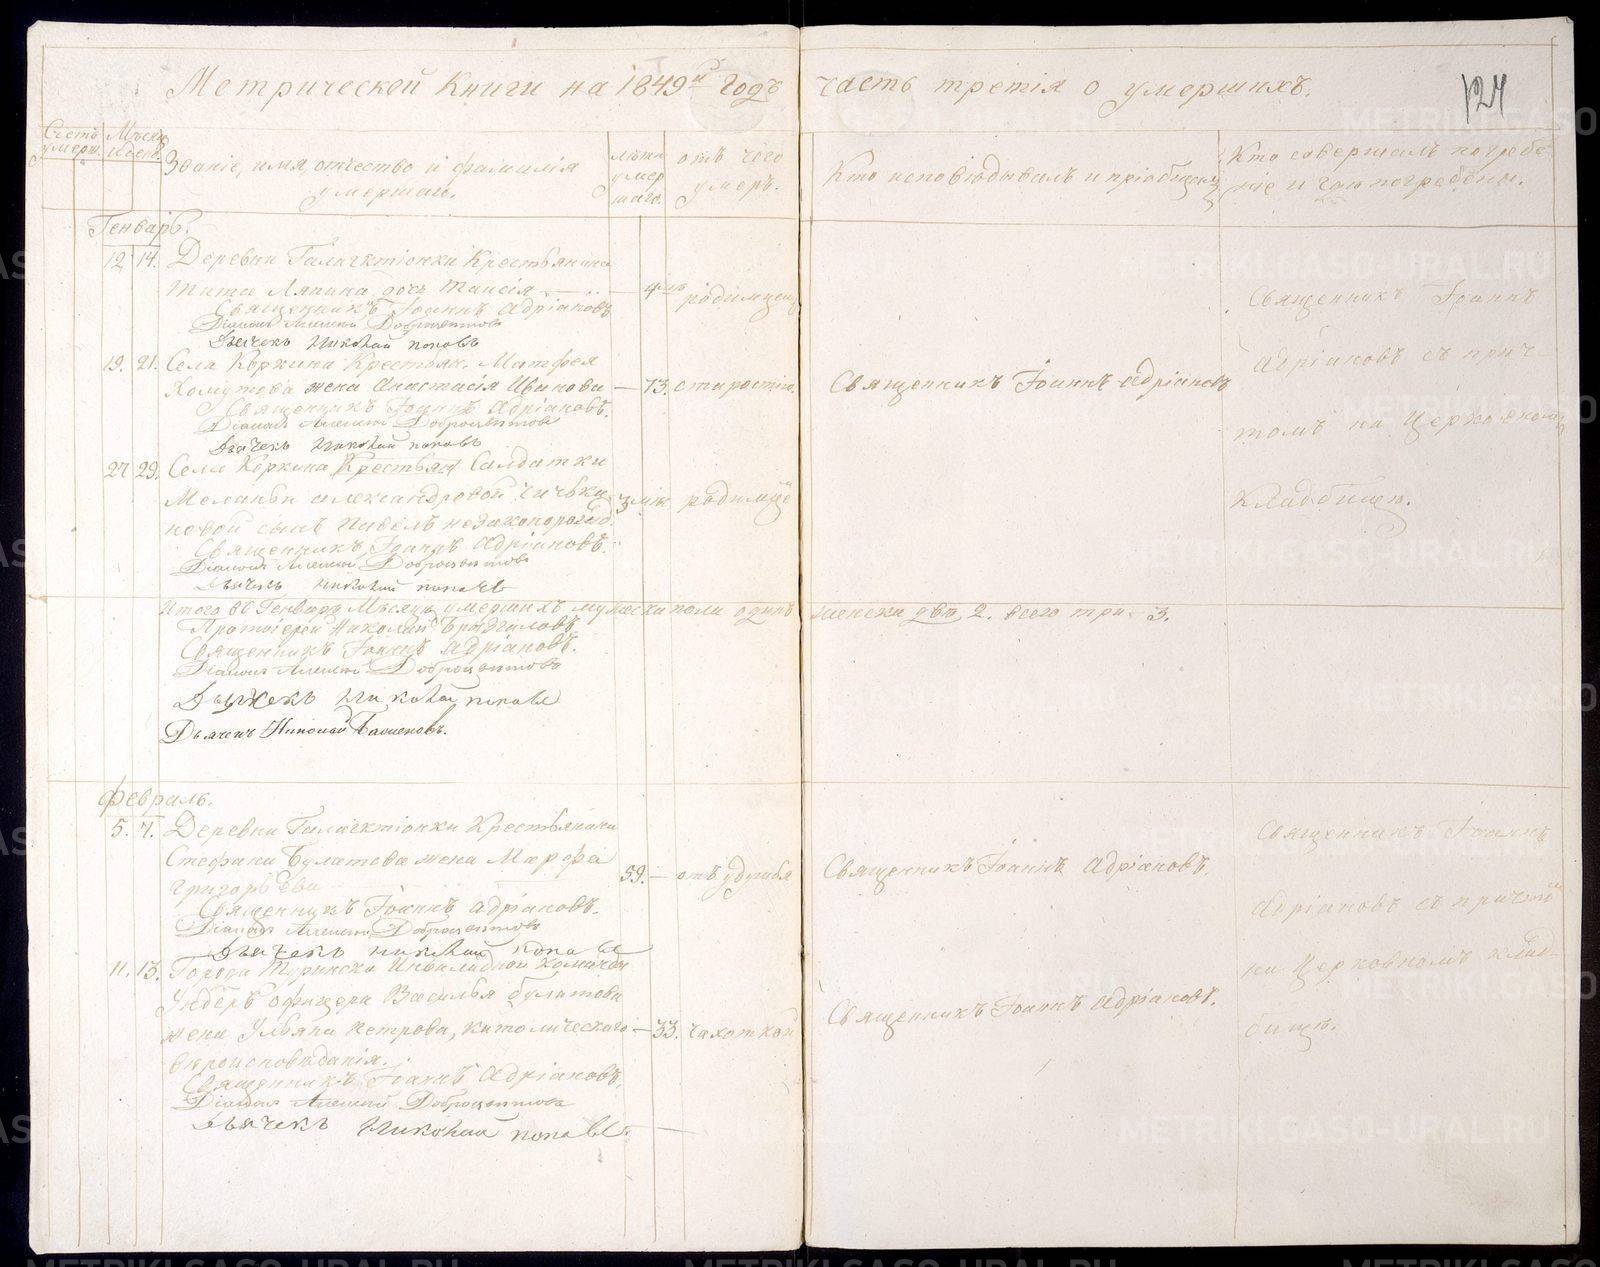 Метрической Книги на 1849й Годъ часть третія о умершихъ.
124
Счетъ умерш.
Мѣсяцъ и день
Званіе, имя, отчество и фамилія
умершаго.
лѣта
умер
шаго.
отъ чего
умеръ.
Кто исповѣдывалъ и пріобщалъ
Кто совершалъ погребе
ніе и гдѣ погребены.
Генварь.
12 14. Деревни Галактіонки Крестьянина
Тита Ляпина дочь Таисія 4 родимцемъ
Священникъ Іоаннъ Адріановъ
Діаконъ Алексѣй Доброцвѣтовъ
Дьячекъ Николай поповъ
19. 21. Села Коркина Крестьян. Матфея
Хомутова жена Анастасія Иванова — 73. старостію.
Священникъ Іоаннъ Адріановъ.
Діаконъ Алексѣй Доброцвѣтовъ
Дьячекъ Николай поповъ
Священникъ Іоаннъ Адріановъ
27 29. Села Коркина Солдатки
Меланьи александровой
сынъ Павелъ 3 родимце
Священникъ Іоаннъ Адріановъ.
Діаконъ Алексѣй Доброцвѣтовъ
Дьячекъ николай поповъ
Священникъ Іоаннъ
Адріановъ съ прич
томъ на Церковномъ
Кладбищѣ.
Итого въ Генварѣ Мѣсяцѣ умершихъ мужеска пола одинъ женска двѣ 2. всего три. 3.
Протоіерей Николай
Священникъ Іоаннъ Адріановъ.
Діаконъ Алексѣй Доброцвѣтовъ
Дьячекъ Николай поповъ
Дьячекъ Николай
Февраль.
5. 7. Деревни Галактіонки Крестьянина
Стефана Булатова жена Марфа
Григорьева 59. — отъ удушья
Священникъ Іоаннъ Адріановъ.
Діаконъ Алексѣй Доброцвѣтовъ
Дьячекъ николай поповъ
Священникъ Іоаннъ Адріановъ.
11. 13. Города Туринска Инвалидной Команды
Ундеръ офицера Василья булатова
жена Ульяна петрова, католическаго — 33. чахоткой
вѣроисповѣданія.
Священникъ Іоаннъ Адріановъ.
Діаконъ Алексѣй Доброцвѣтовъ
Дьячекъ Николай поповъ.
Священникъ Іоаннъ Адріановъ.
Священникъ Іоаннъ
Адріановъ съ причтомъ
на Церковномъ клад
бищѣ.
METRIKI.GASO-URAL.RU